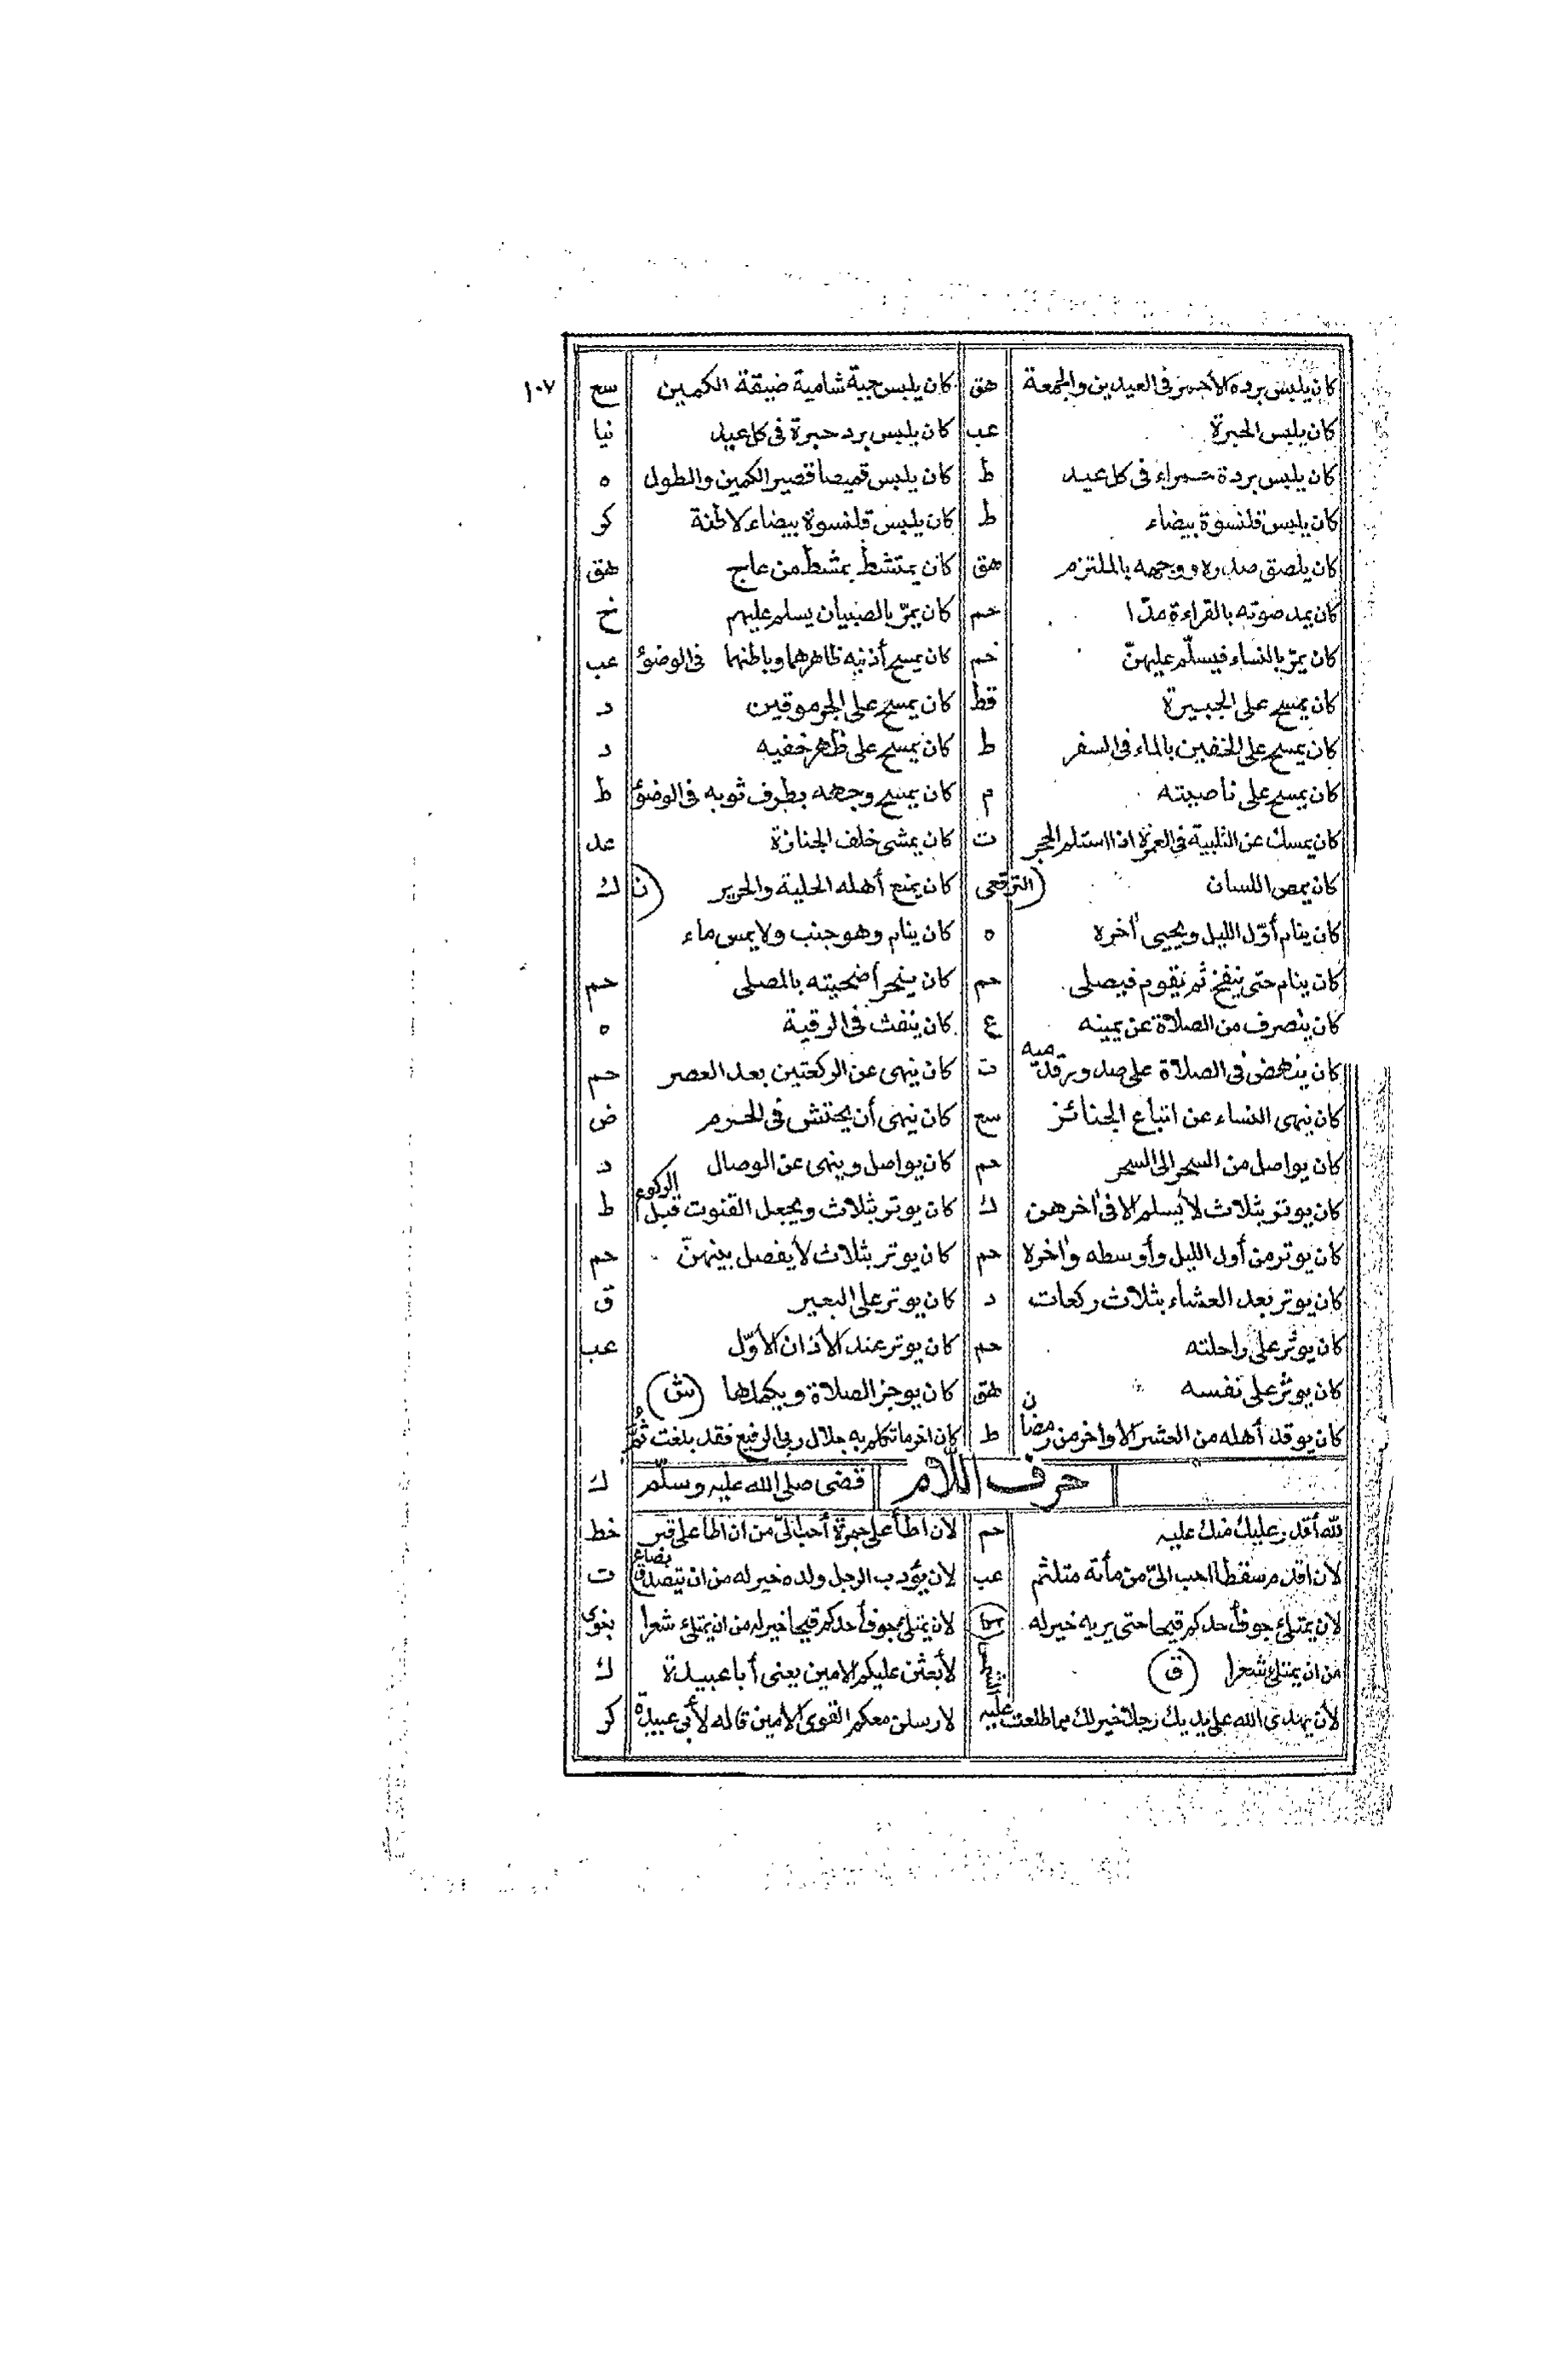 ١٠٧
كان يلبس برده الأحمر فى العيدين والجمعة هق كان يلبس جبة شامية ضيقة الكمين سع
كان يلبس الحبرة عب كان يلبس برد حبرة فى كل عيد نيا
كان يلبس بردة حمراء فى كل عيد ط كان يلبس قميصا قصير الكمين والطول ه
كان يلبس قلنسوة بيضاء ط كان يلبس قلنسوة بيضاء لاطئة كر
كان يلصق صدره ووجهه بالملتزم هق كان يمتشط بمشط من عاج هق
كان يمد صوته بالقراءة مدّا حم كان يمرّ بالصبيان يسلم عليهم خ
كان يمرّ بالنساء فيسلّم عليهنّ حم كان يمسح أذنيه ظاهرهما وباطنهما فى الوضوء عب
كان يمسح على الجبيرة قط كان يمسح على الجرموقين د
كان يمسح على الخفين بالماء فى السفر ط كان يمسح على ظهر خفيه د
كان يمسح على ناصيته م كان يمسح وجهه بطرف ثوبه فى الوضوء ط
كان يمسك عن التلبية فى العمرة اذا استلم الحجر ت كان يمشى خلف الجنازة عد
كان يمص اللسان (الترقعى) كان يمنع أهله الحلية والحرير (ن) ك
كان ينام أوّل الليل ويحيى أخره ه كان ينام وهو جنب ولا يمس ماء
كان ينام حتى ينفخ ثم يقوم فيصلى حم كان ينحر أضحيته بالمصلى حم
كان ينصرف من الصلاة عن يمينه ع كان ينفث فى الرقية ه
كان ينهض فى الصلاة على صدور قدميه ت كان ينهى عن الركعتين بعد العصر حم
كان ينهى النساء عن اتباع الجنائز سع كان ينهى أن يحتش فى الحرم ض
كان يواصل من السحر الى السحر حم كان يواصل وينهى عن الوصال د
كان يوتر بثلاث لا يسلم الا فى أخرهن ك كان يوتر بثلاث ويجعل القنوت قبل الركوع ط
كان يوتر من أول الليل وأوسطه وأخره حم كان يوتر بثلاث لا يفصل بينهنّ حم
كان يوتر بعد العشاء بثلاث ركعات د كان يوتر على البعير ق
كان يوتر على راحلته حم كان يوتر عند الأذان الأوّل عب
كان يوثر على نفسه هق كان يوجز الصلاة ويكملها (ش)
كان يوقد أهله من العشر الاواخر من رمضان ط كان اخر ما تكلم به جلال ربى الرفيع فقد بلغت ثُمَّ
حرف اللّام قضى صلى الله عليه وسلّم ك
لله أقدر عليك منك عليه حم لان اطأ على جمرة أحب الىّ من ان اطأ على قبر خط
لان اقدم سقطا احب الىّ من مأة متلثم عب لان يؤدب الرجل ولده خير له من ان يتصدق بصاع ت
لان يمتلئ جوف أحدكم قيحا حتى يريه خير له لان يمتلئ جوف أحدكم قيحا خير له من ان يمتلئ شعرا بغوى
من ان يمتلئ شعرا (ق) لأبعثن عليكم الامين يعنى أبا عبيدة ك
لأن يهدى الله على يديك رجلا خير لك مما طلعت عليه الشمس لارسلن معكم القوى الامين قاله لأبى عبيدة كر